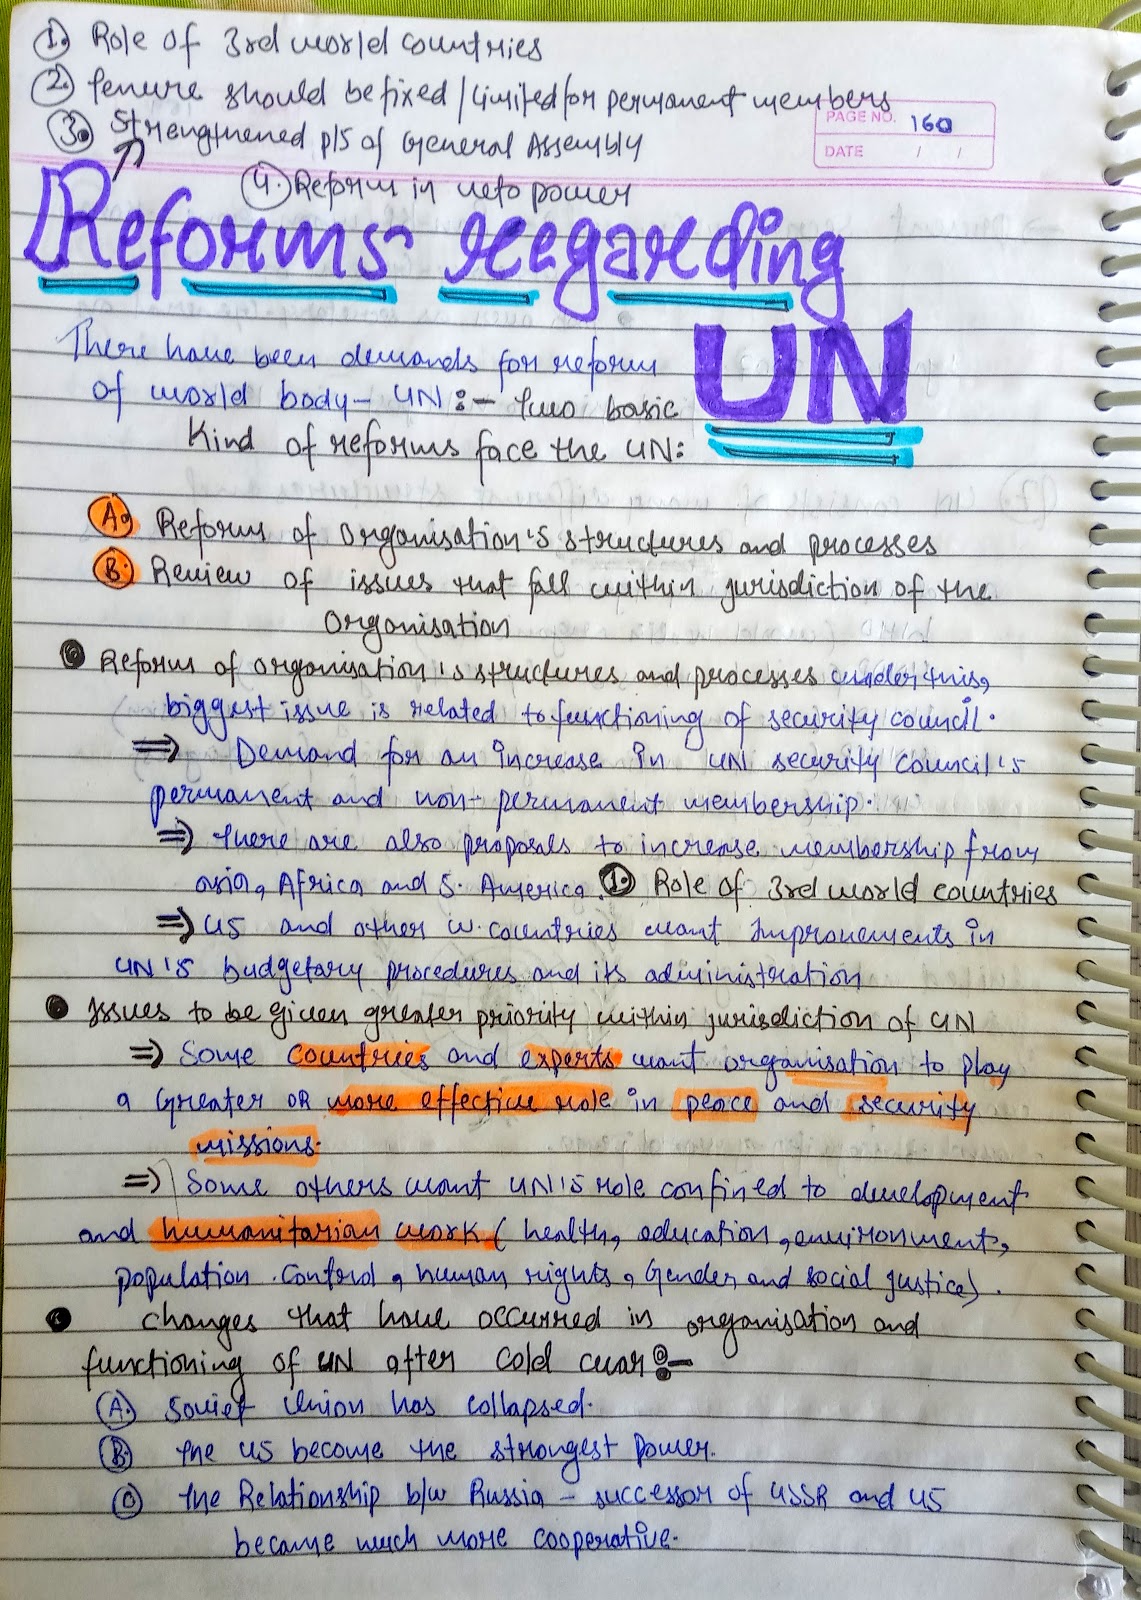 1. Role of 3rd world countries
2. Tenure should be fixed / Limited for permanent members
3. Strengthened P/S of General Assembly
PAGE NO. 160
DATE / /
4. Reform in veto power
Reforms regarding
UN
There have been demands for reform
of world body- UN :- Two basic
Kind of reforms face the UN:
A. Reform of Organisation's structures and processes
B. Review of issues that fall within jurisdiction of the
Organisation
Reform of organisation's structures and processes under this,
biggest issue is related to functioning of security council.
⇒ Demand for an increase in UN security Council's
permanent and non-permanent membership.
⇒ There are also proposals to increase membership from
asia, Africa and S. America. 1. Role of 3rd world countries
⇒ US and other w. countries want Improvements in
UN's budgetary procedures and its administration
Issues to be given greater priority within jurisdiction of UN
⇒ Some countries and experts want organisation to play
a Greater OR more effective role in peace and security
missions.
⇒ Some others want UN's role confined to development
and humanitarian work ( health, education, environment,
population. Control, human rights, Gender and social justice).
Changes that have occurred in organisation and
functioning of UN after Cold war :-
A. Soviet Union has collapsed.
B. The US become the strongest power.
The Relationship b/w Russia - successor of USSR and US
became much more cooperative.